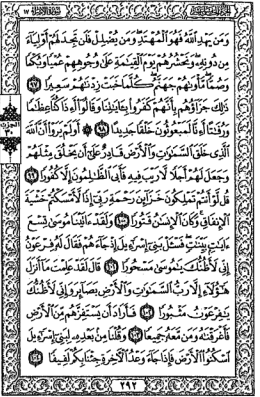 الجزء الخامس عشر
سورة الإسراء ١٧
وَمَن يَهْدِ ٱللَّهُ فَهُوَ ٱلْمُهْتَدِ وَمَن يُضْلِلْ فَلَن تَجِدَ لَهُمْ أَوْلِيَآءَ
مِن دُونِهِۦ وَنَحْشُرُهُمْ يَوْمَ ٱلْقِيَٰمَةِ عَلَىٰ وُجُوهِهِمْ عُمْيًا وَبُكْمًا
وَصُمًّا مَّأْوَىٰهُمْ جَهَنَّمُ كُلَّمَا خَبَتْ زِدْنَٰهُمْ سَعِيرًا ٩٧
ذَٰلِكَ جَزَآؤُهُم بِأَنَّهُمْ كَفَرُوا۟ بِـَٔايَٰتِنَا وَقَالُوٓا۟ أَءِذَا كُنَّا عِظَٰمًا
وَرُفَٰتًا أَءِنَّا لَمَبْعُوثُونَ خَلْقًا جَدِيدًا ٩٨ أَوَلَمْ يَرَوْا۟ أَنَّ ٱللَّهَ
ٱلَّذِى خَلَقَ ٱلسَّمَٰوَٰتِ وَٱلْأَرْضَ قَادِرٌ عَلَىٰٓ أَن يَخْلُقَ مِثْلَهُمْ
وَجَعَلَ لَهُمْ أَجَلًا لَّا رَيْبَ فِيهِ فَأَبَى ٱلظَّٰلِمُونَ إِلَّا كُفُورًا ٩٩
قُل لَّوْ أَنتُمْ تَمْلِكُونَ خَزَآئِنَ رَحْمَةِ رَبِّىٓ إِذًا لَّأَمْسَكْتُمْ خَشْيَةَ
ٱلْإِنفَاقِ وَكَانَ ٱلْإِنسَٰنُ قَتُورًا ١٠٠ وَلَقَدْ ءَاتَيْنَا مُوسَىٰ تِسْعَ
ءَايَٰتٍۭ بَيِّنَٰتٍ فَسْـَٔلْ بَنِىٓ إِسْرَٰٓءِيلَ إِذْ جَآءَهُمْ فَقَالَ لَهُۥ فِرْعَوْنُ
إِنِّى لَأَظُنُّكَ يَٰمُوسَىٰ مَسْحُورًا ١٠١ قَالَ لَقَدْ عَلِمْتَ مَآ أَنزَلَ
هَٰٓؤُلَآءِ إِلَّا رَبُّ ٱلسَّمَٰوَٰتِ وَٱلْأَرْضِ بَصَآئِرَ وَإِنِّى لَأَظُنُّكَ
يَٰفِرْعَوْنُ مَثْبُورًا ١٠٢ فَأَرَادَ أَن يَسْتَفِزَّهُم مِّنَ ٱلْأَرْضِ
فَأَغْرَقْنَٰهُ وَمَن مَّعَهُۥ جَمِيعًا ١٠٣ وَقُلْنَا مِنۢ بَعْدِهِۦ لِبَنِىٓ إِسْرَٰٓءِيلَ
ٱسْكُنُوا۟ ٱلْأَرْضَ فَإِذَا جَآءَ وَعْدُ ٱلْـَٔاخِرَةِ جِئْنَا بِكُمْ لَفِيفًا ١٠٤
٢٩٢